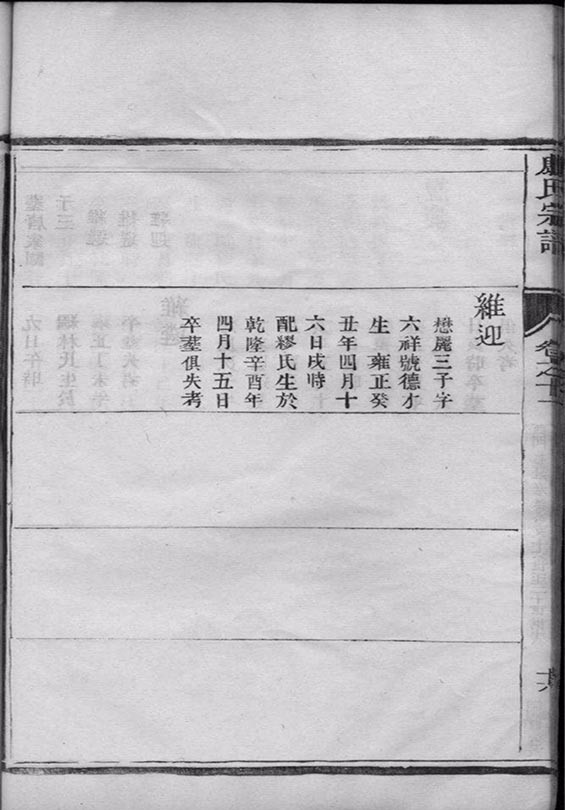 氏宗譜
卷之十一
十六
維迎
懋麗三子字
六祥號德才
生 雍正癸
丑年四月十
六日戌時
配繆氏生於
乾隆辛酉年
四月十五日
卒塟俱失考